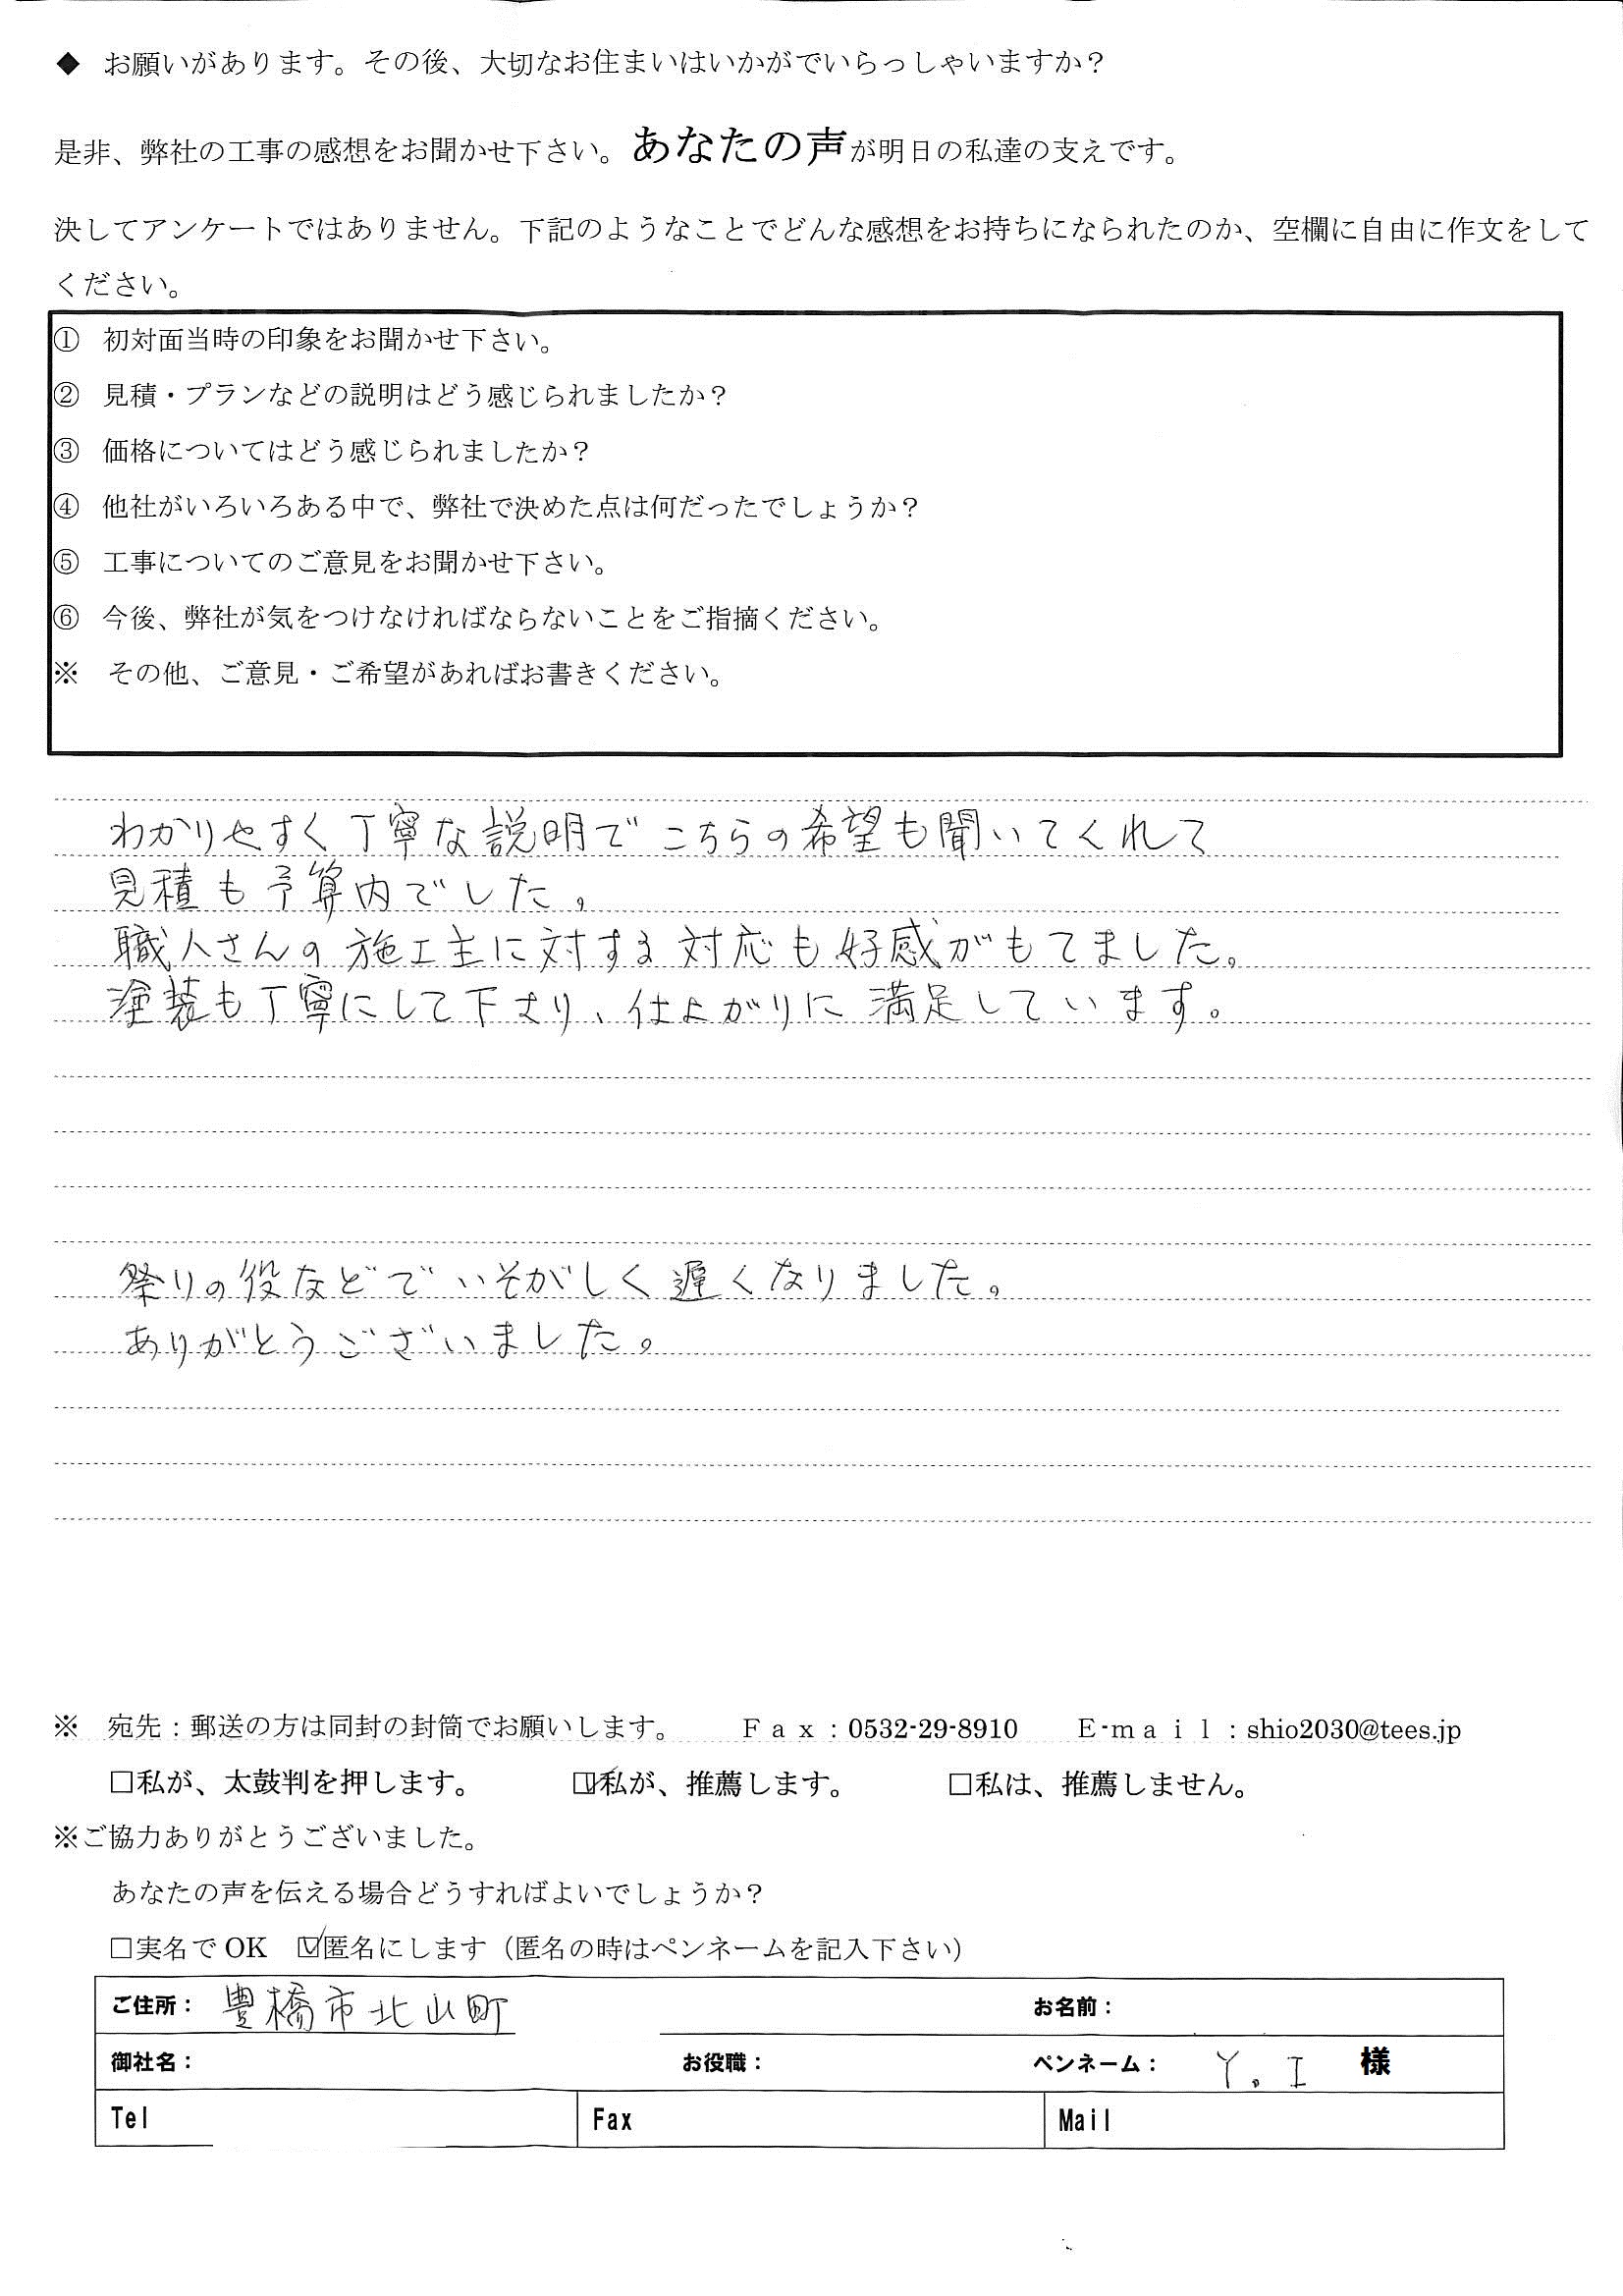 ◆ お願いがあります。その後、大切なお住まいはいかがでいらっしゃいますか？
是非、弊社の工事の感想をお聞かせ下さい。あなたの声が明日の私達の支えです。
決してアンケートではありません。下記のようなことでどんな感想をお持ちになられたのか、空欄に自由に作文をして
ください。
① 初対面当時の印象をお聞かせ下さい。
② 見積・プランなどの説明はどう感じられましたか？
③ 価格についてはどう感じられましたか？
④ 他社がいろいろある中で、弊社で決めた点は何だったでしょうか？
⑤ 工事についてのご意見をお聞かせ下さい。
⑥ 今後、弊社が気をつけなければならないことをご指摘ください。
※ その他、ご意見・ご希望があればお書きください。
わかりやすく丁寧な説明でこちらの希望も聞いてくれて
見積も予算内でした。
職人さんの施工主に対する対応も好感がもてました。
塗装も丁寧にして下さり、仕上がりに満足しています。
祭りの役などでいそがしく遅くなりました。
ありがとうございました。
※ 宛先：郵送の方は同封の封筒でお願いします。 Ｆａｘ：0532-29-8910 Ｅ-ｍａｉｌ：shio2030@tees.jp
□私が、太鼓判を押します。 ☑私が、推薦します。 □私は、推薦しません。
※ご協力ありがとうございました。
あなたの声を伝える場合どうすればよいでしょうか？
□実名で OK ☑匿名にします（匿名の時はペンネームを記入下さい）
ご住所： 豊橋市北山町 お名前：
御社名： お役職： ペンネーム： Y. I 様
Tel Fax Mail